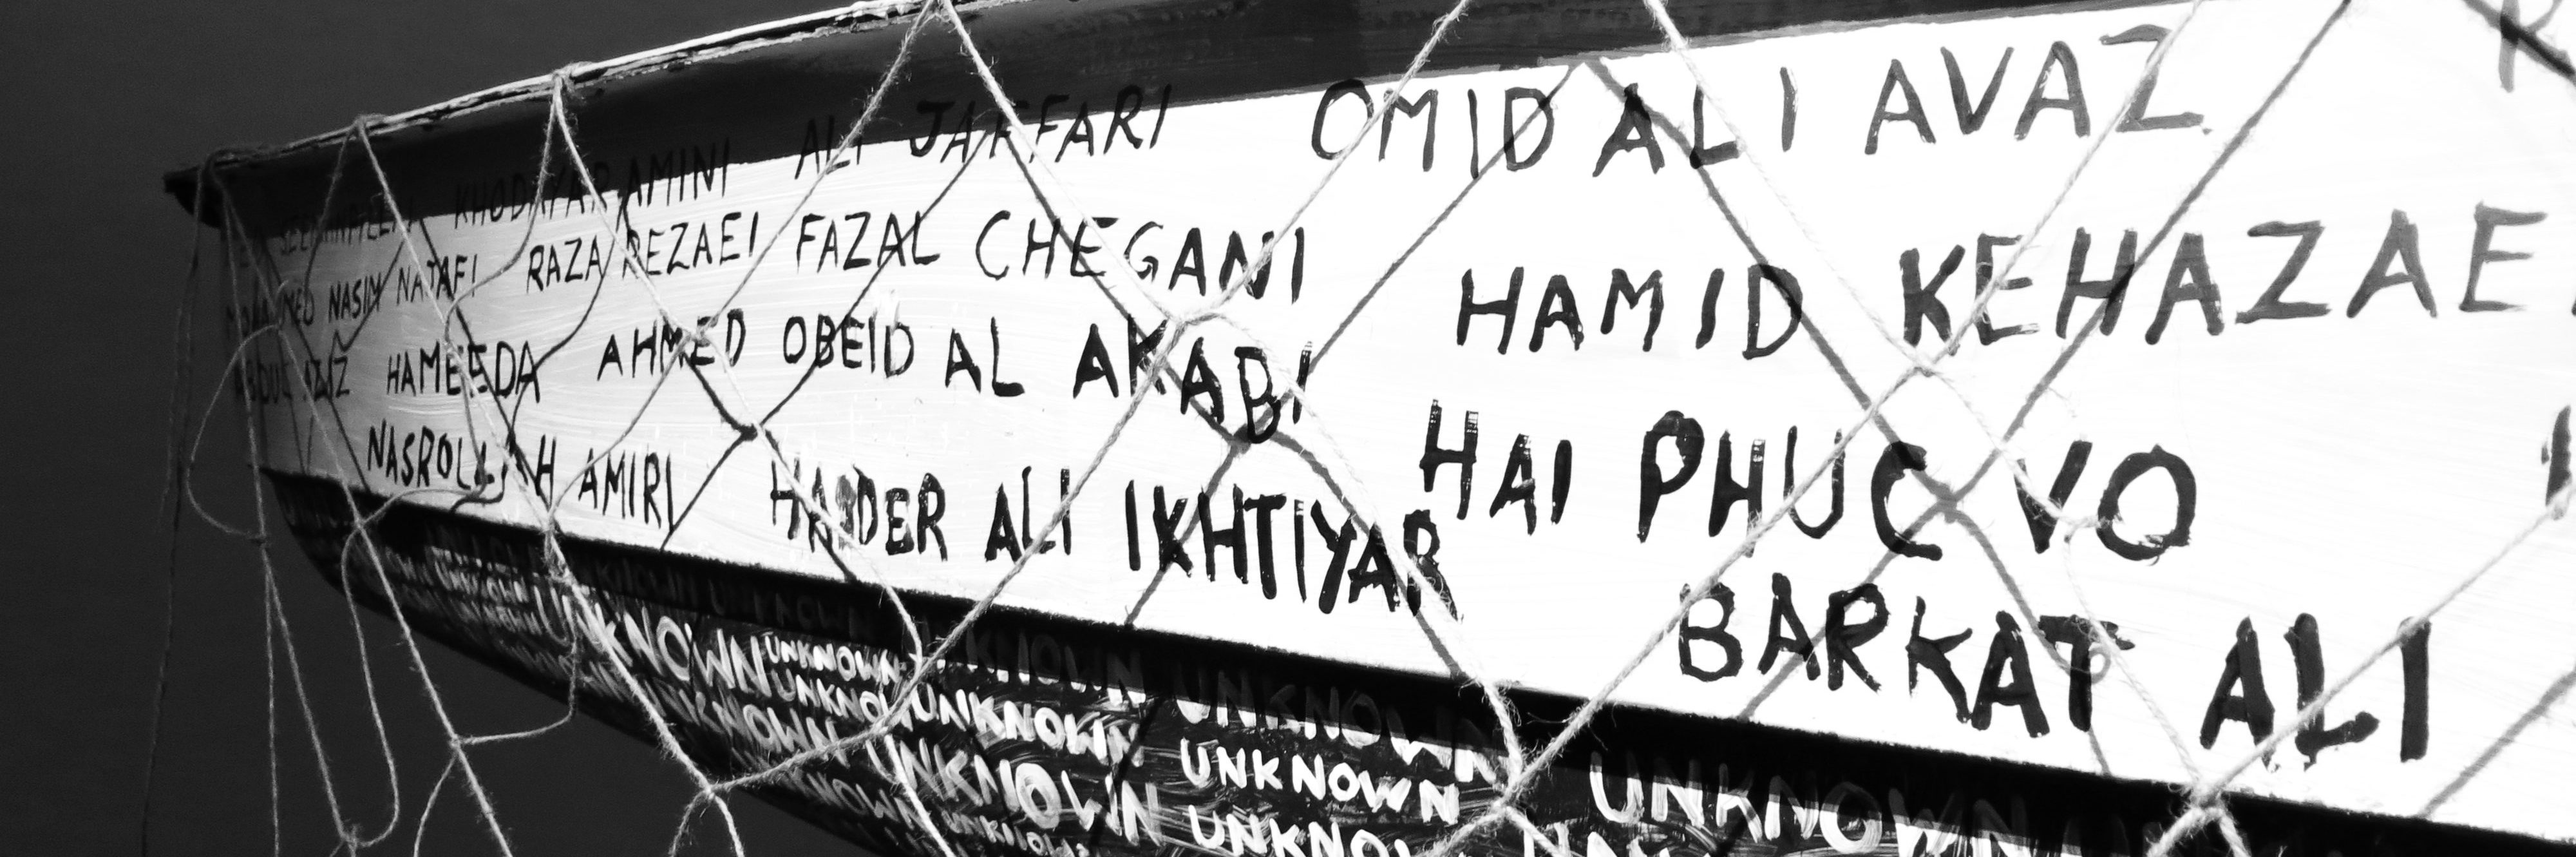 KHODAYAR AMINI ALI JAFFARI OMID ALI AVAZ
NASIM NAJAFI RAZA REZAEI FAZAL CHEGANI HAMID KEHAZAE
ABDUL AZIZ HAMEEDA AHMED OBEID AL AKABI HAI PHUC VO
NASROLLAH AMIRI HAIDER ALI IKHTIYAR BARKAT ALI
UNKNOWN UNKNOWN UNKNOWN UNKNOWN
UNKNOWN UNKNOWN UNKNOWN UNKNOWN
UNKNOWN UNKNOWN UNKNOWN UNKNOWN
UNKNOWN UNKNOWN UNKNOWN